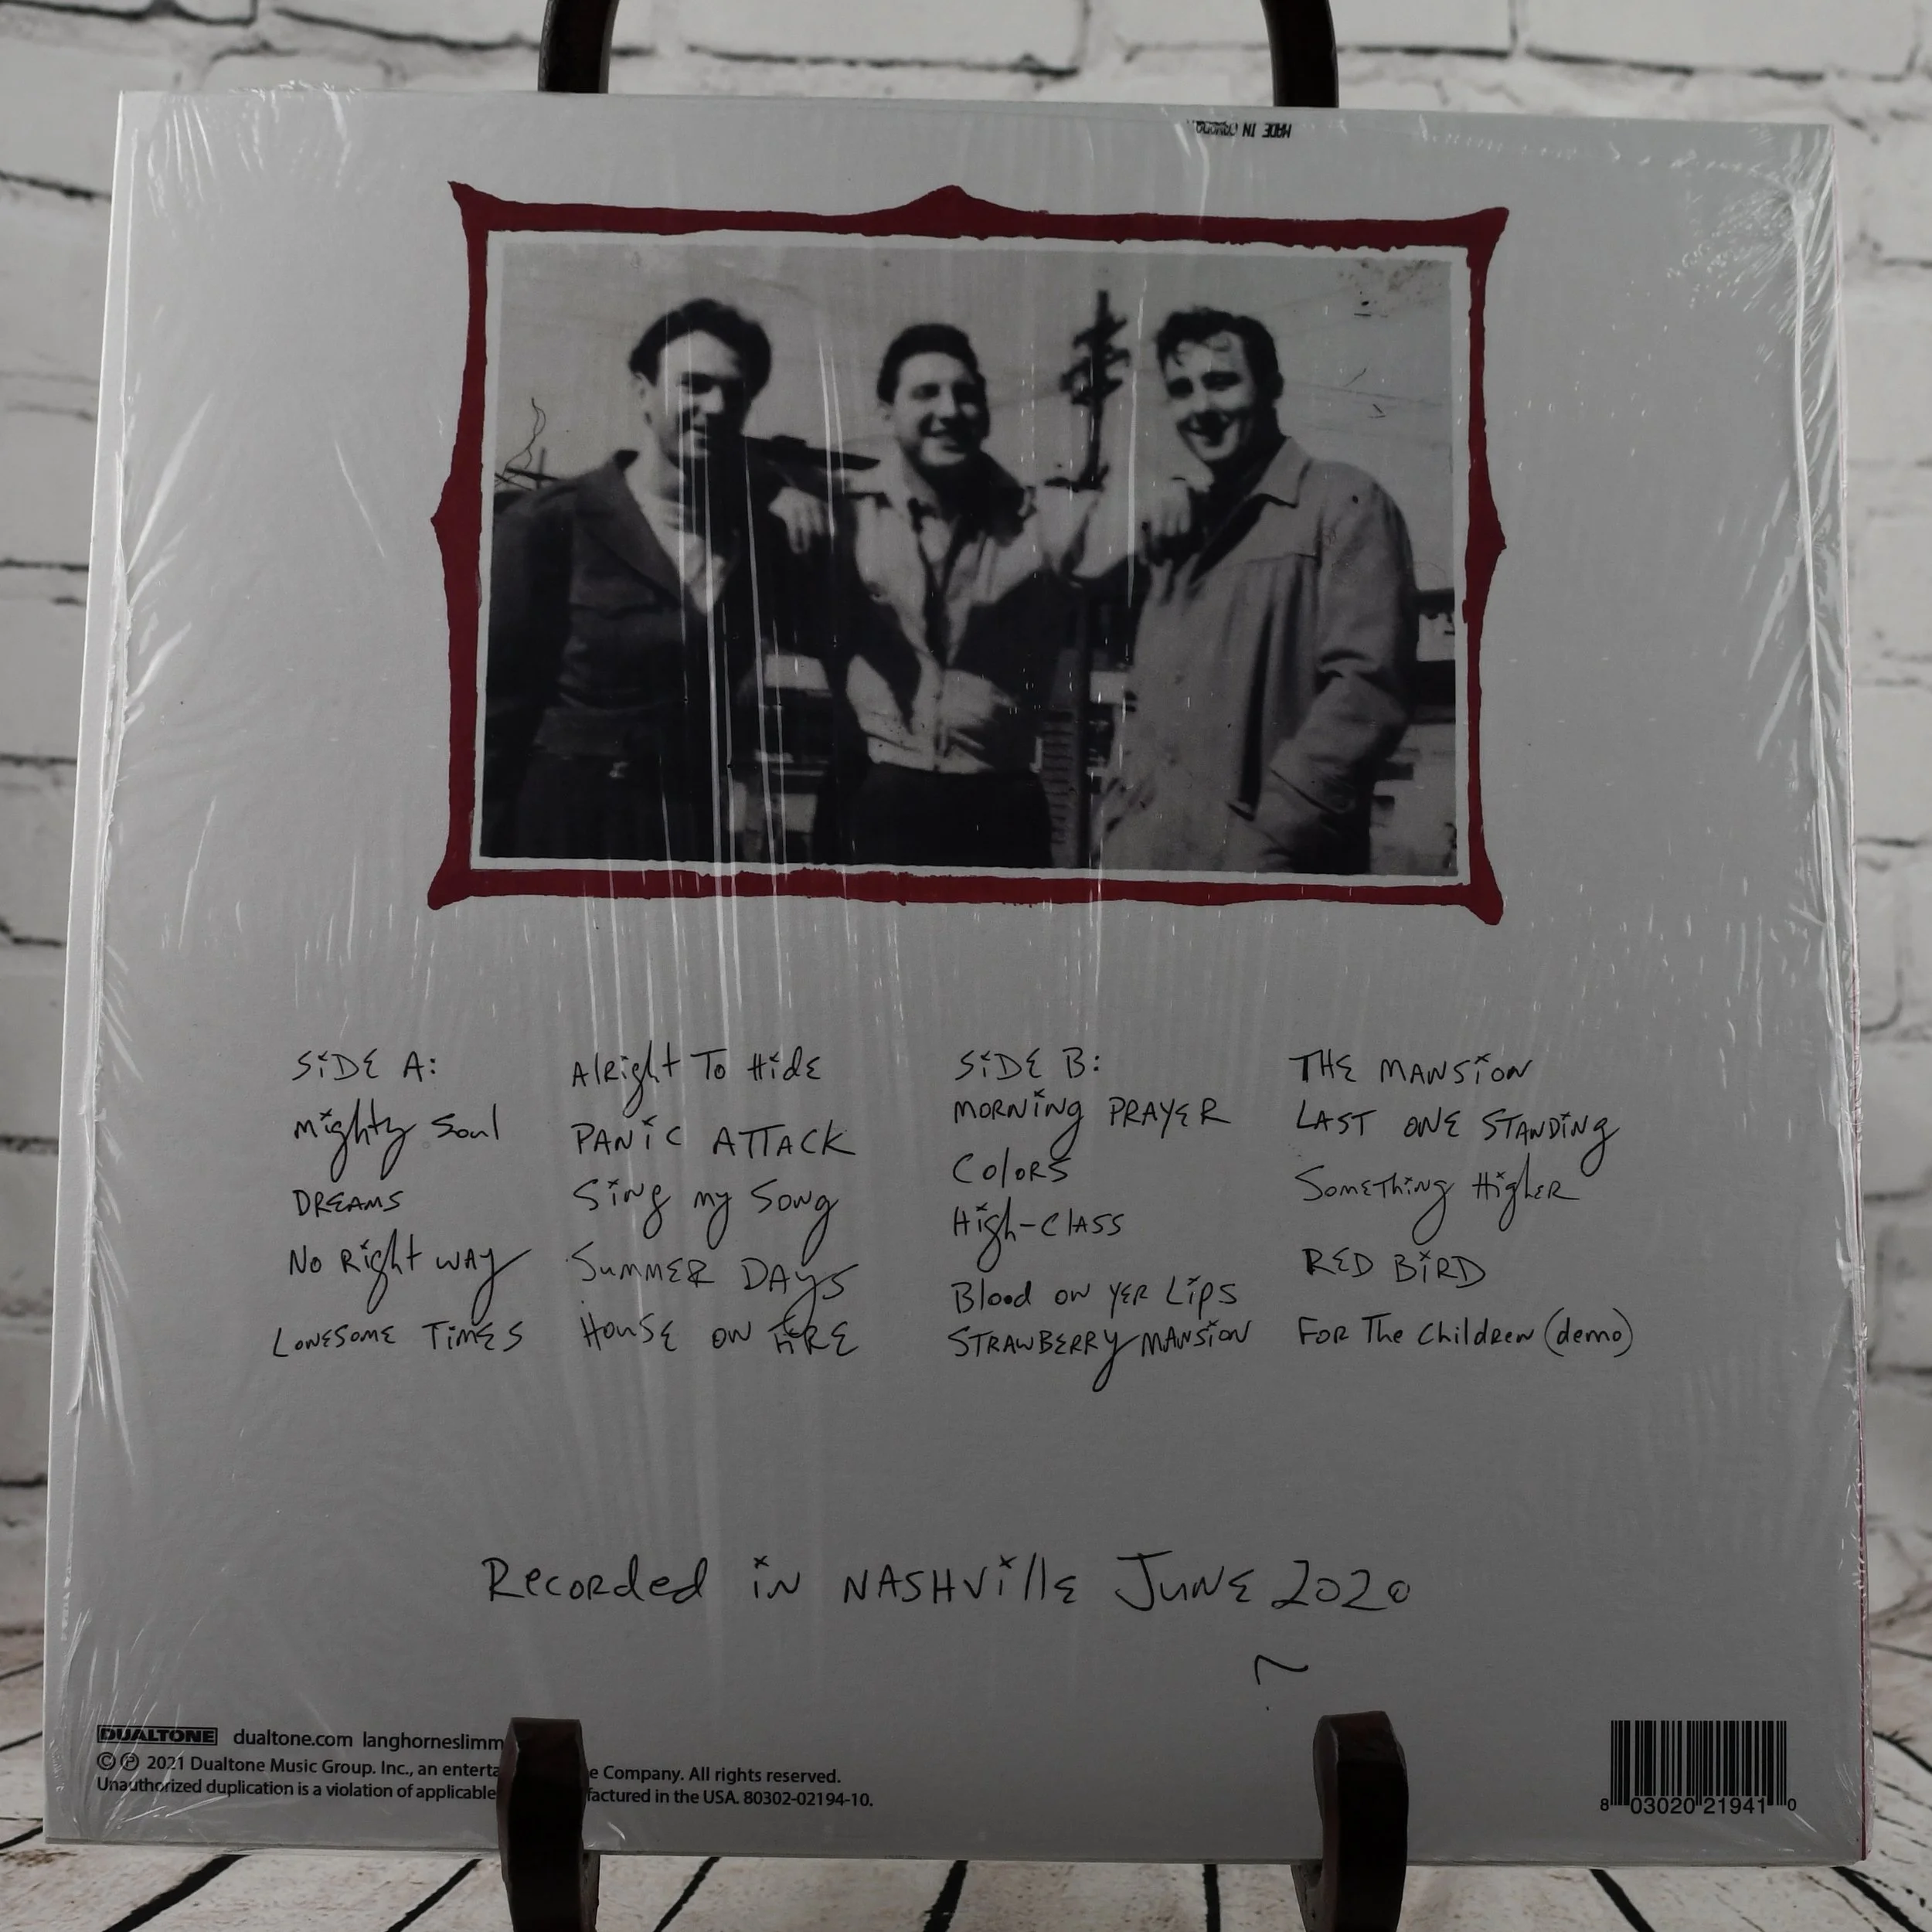 MADE IN CANADA
SiDE A:
Mighty Soul
DREAMS
No Right WAY
LONESOME TiMES
Alright To HidE
PANiC ATTACK
Sing my Song
SUMMER DAYS
HOUSE ON FiRE
SiDE B:
MORNiNg PRAYER
Colors
High-ClASS
Blood on YER Lips
STRAWBERRY MANSiON
THE MANSiON
LAST ONE STANDiNg
SomeThing Higher
RED BiRD
FOR The Children (demo)
Recorded in NASHVillE JUNE 2020
~
DUALTONE dualtone.com langhorneslimm
© ℗ 2021 Dualtone Music Group. Inc., an enterta e Company. All rights reserved.
Unauthorized duplication is a violation of applicable factured in the USA. 80302-02194-10.
8 03020 21941 0